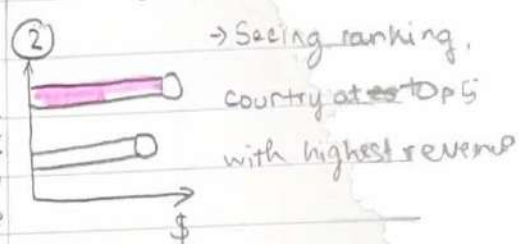 2
→ Seeing ranking.
country at top 5
with highest revenue
$